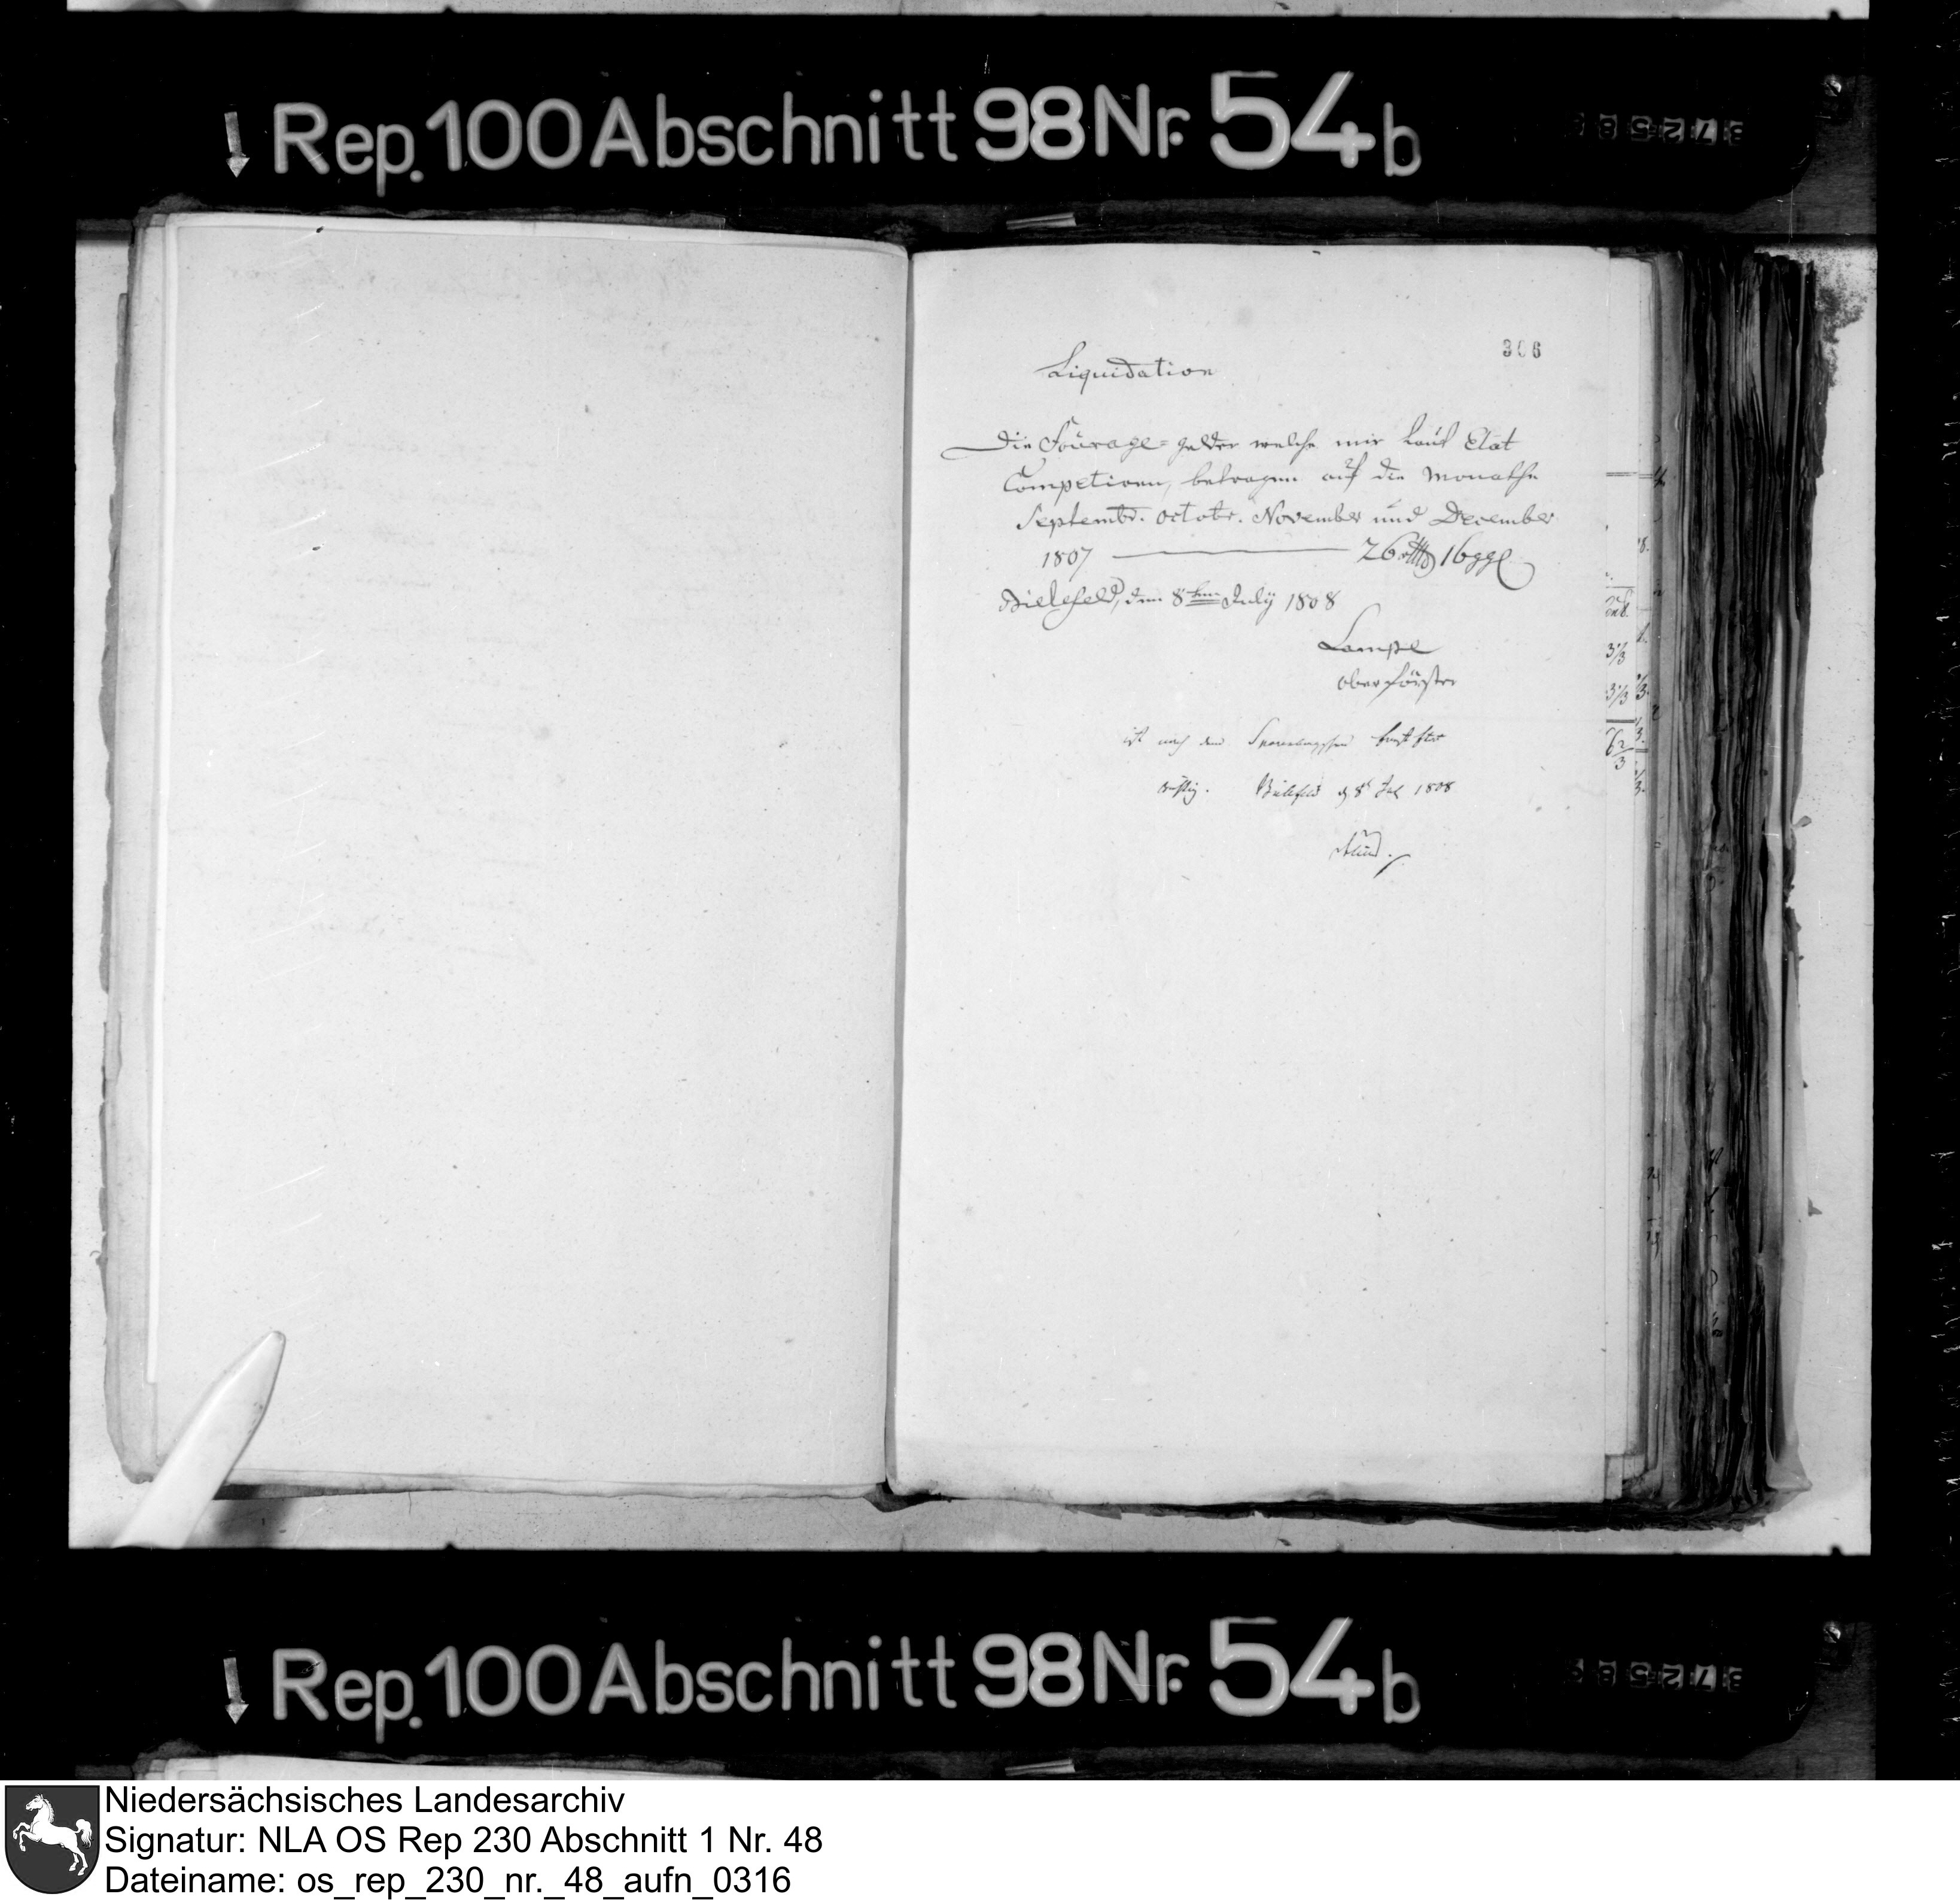 Rep. 100 Abschnitt 98 Nr. 54 b
37258
306
Liquidation
Die Fourage=gelder welche mir Laut Etat
Competiren, betragen auf die Monathe
Septembr. Octobr. November und December
1807 26 rthlr 16 ggl
Bielefeld, den 8ten July 1808
Lampe
Oberförster
ist nach dem Sparenbergschen Forst Etat
richtig. Bielefeld d 8t Jul 1808
Rep. 100 Abschnitt 98 Nr. 54 b
37258
Niedersächsisches Landesarchiv
Signatur: NLA OS Rep 230 Abschnitt 1 Nr. 48
Dateiname: os_rep_230_nr._48_aufn_0316